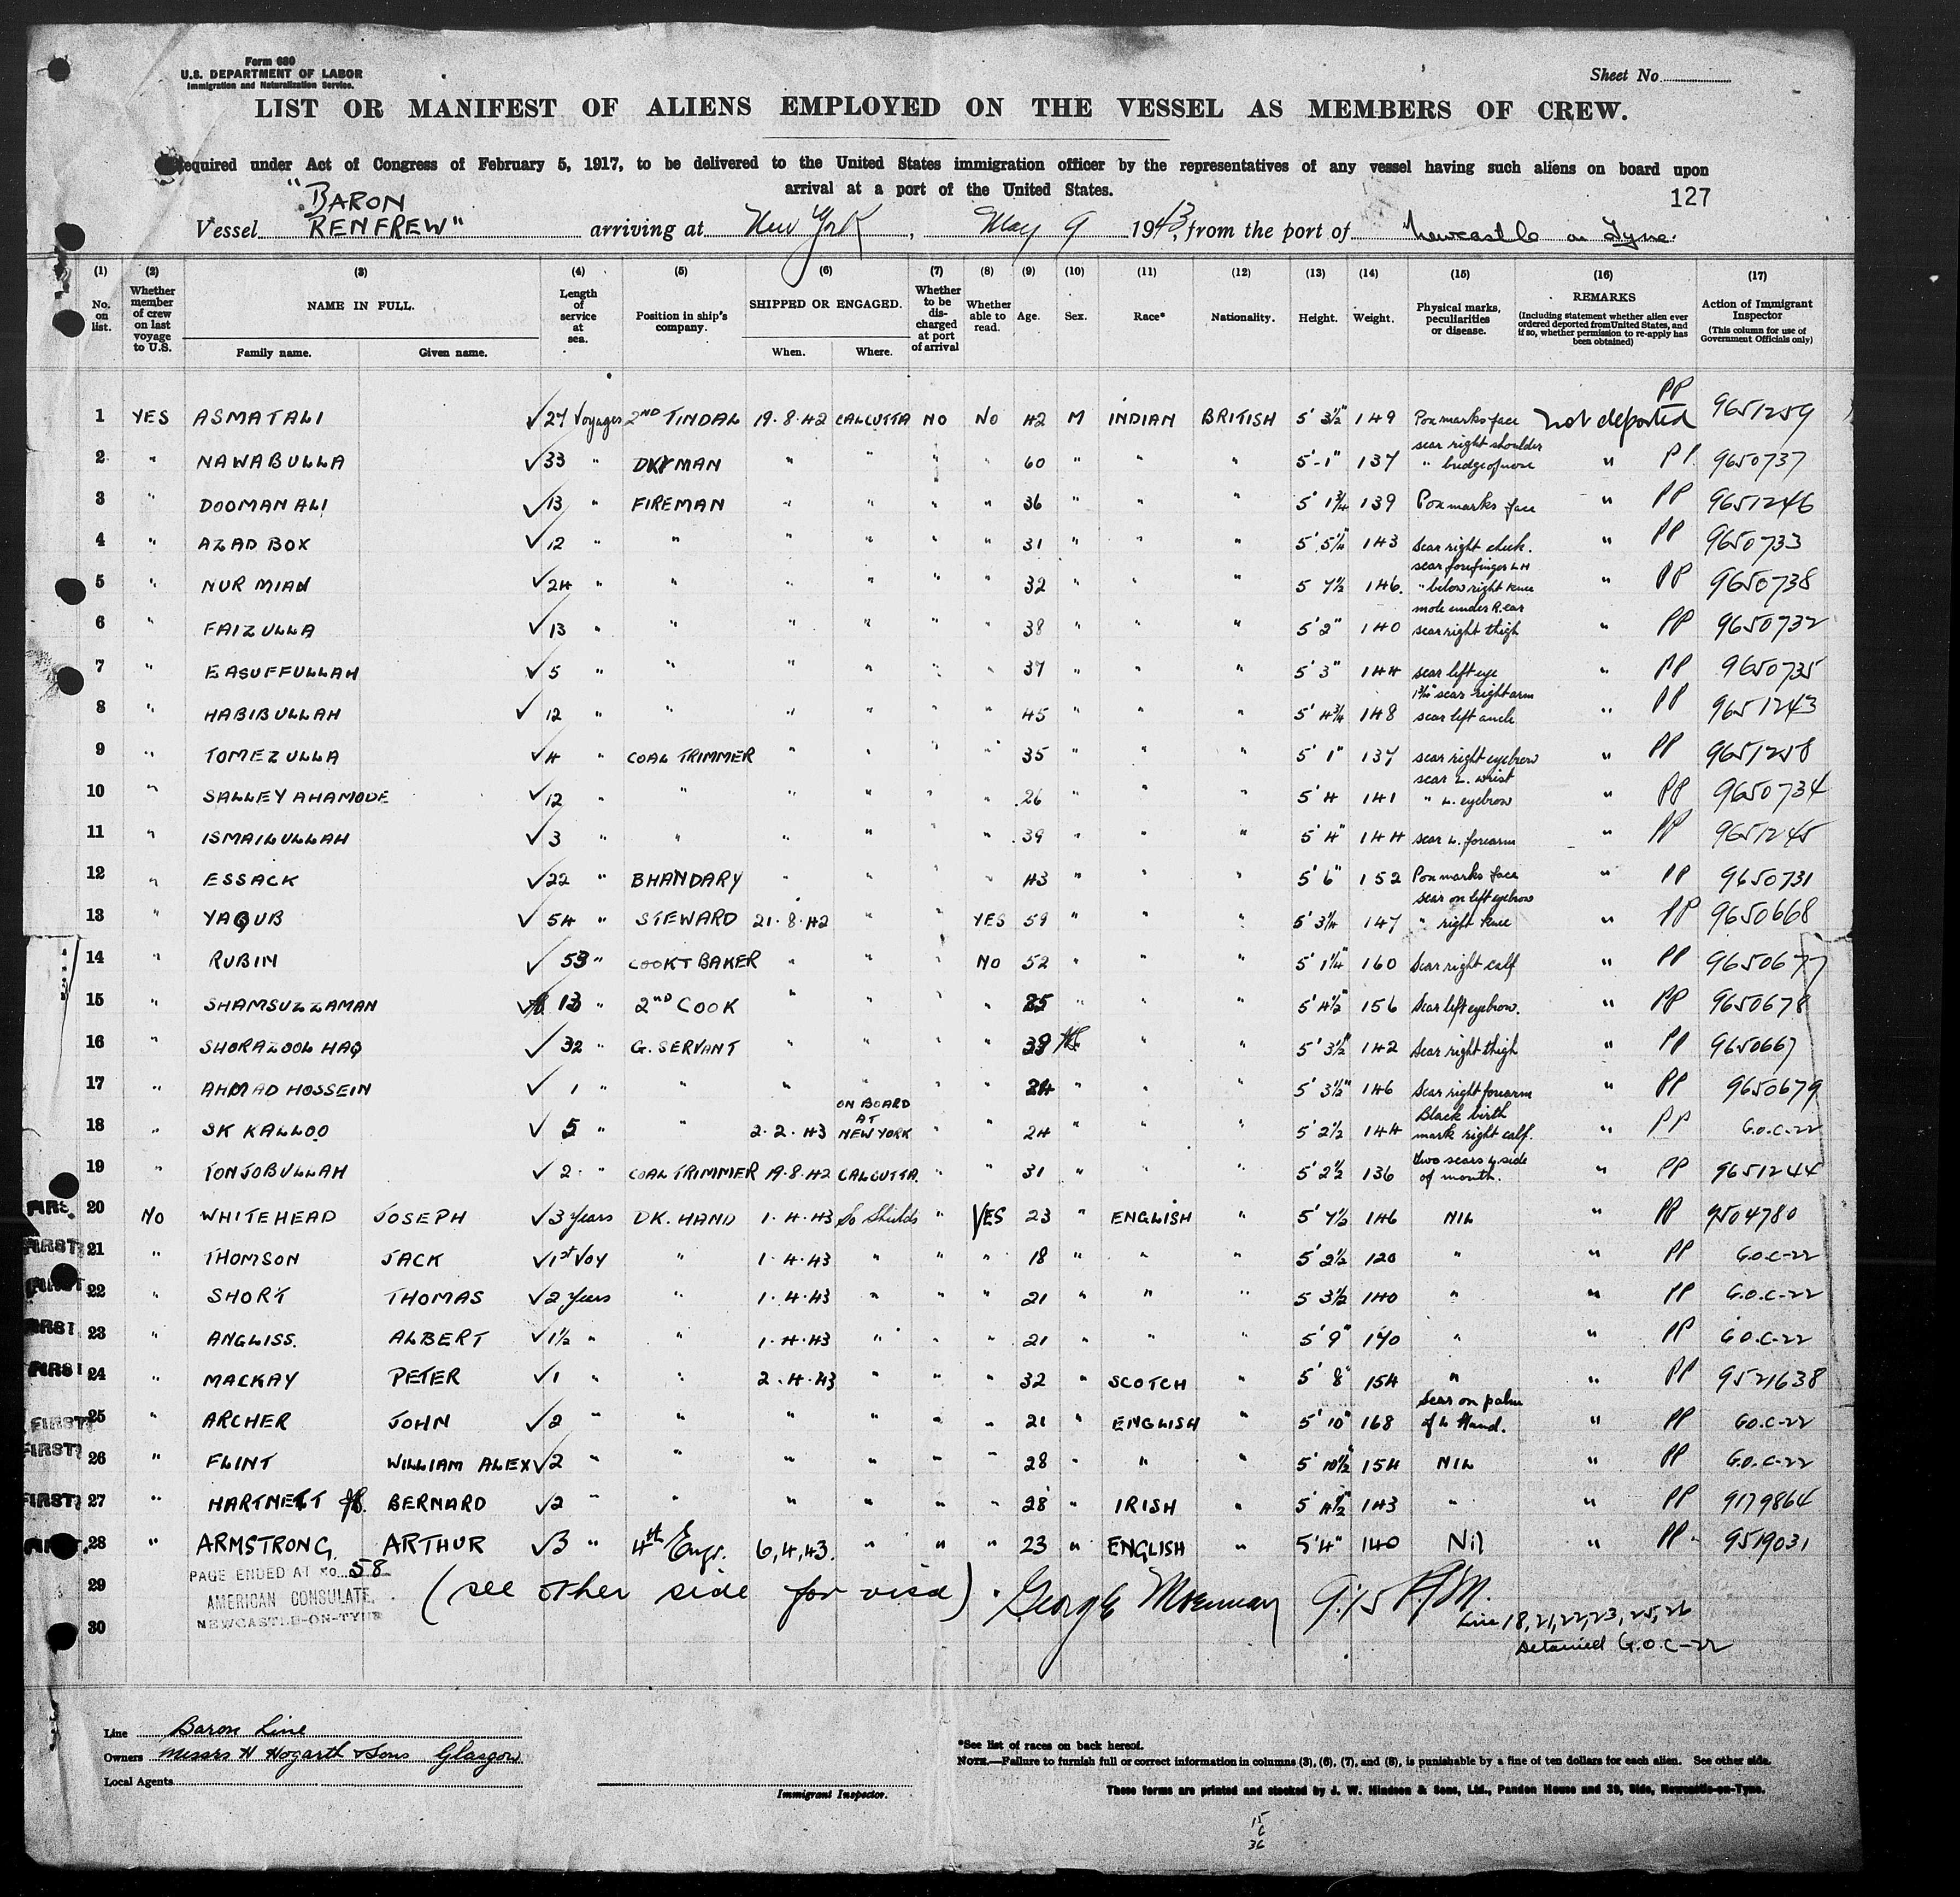 Form 680
U.S. DEPARTMENT OF LABOR
Immigration and Naturalization Service.
Sheet No.
LIST OR MANIFEST OF ALIENS EMPLOYED ON THE VESSEL AS MEMBERS OF CREW.
equired under Act of Congress of February 5, 1917, to be delivered to the United States immigration officer by the representatives of any vessel having such aliens on board upon
arrival at a port of the United States.
127
Vessel "BARON RENFREW" arriving at New York, May 9 1943, from the port of Newcastle on Tyne.
(1) (2) (3) (4) (5) (6) (7) (8) (9) (10) (11) (12) (13) (14) (15) (16) (17)
No. on list. Whether member of crew on last voyage to U.S. NAME IN FULL. Family name. Given name. Length of service at sea. Position in ship's company. SHIPPED OR ENGAGED. When. Where. Whether to be discharged at port of arrival Whether able to read. Age. Sex. Race* Nationality. Height. Weight. Physical marks, peculiarities or disease. REMARKS (Including statement whether alien ever ordered deported from United States, and if so, whether permission to re-apply has been obtained) Action of Immigrant Inspector (This column for use of Government Officials only)
1 YES ASMATALI ✓ 27 Voyages 2ND TINDAL 19.8.42 CALCUTTA NO NO 42 M INDIAN BRITISH 5' 3½" 149 Pox marks face not deported PP 9651259
2 " NAWABULLA ✓ 33 " DKYMAN " " " " 60 " " " 5'-1" 137 scar right shoulder " bridge of nose " PP 9650737
3 " DOOMAN ALI ✓ 13 " FIREMAN " " " " 36 " " " 5' 1¾ 139 Pox marks face " PP 9651246
4 " AZAD BOX ✓ 12 " " " " " " 31 " " " 5' 5¼ 143 Scar right cheek. " PP 9650733
5 " NUR MIAN ✓ 24 " " " " " " 32 " " " 5 7½ 146. scar forefinger LH " below right knee " PP 9650738
6 " FAIZULLA ✓ 13 " " " " " " 38 " " " 5' 2" 140 mole under R. ear scar right thigh " PP 9650732
7 " EASUFFULLAH ✓ 5 " " " " " " 37 " " " 5' 3" 144 scar left eye " PP 9650735
8 " HABIBULLAH ✓ 12 " " " " " " 45 " " " 5' 4¾ 148 scar right arm scar left " PP 9651243
9 " TOMEZULLA ✓ 4 " COAL TRIMMER " " " " 35 " " " 5' 1" 137 scar right eyebrow " PP 9651258
10 " SALLEY AHAMODE ✓ 12 " " " " " " 26 " " " 5' 4 141 scar L. wrist " L. eyebrow " PP 9650734
11 " ISMAILULLAH ✓ 3 " " " " " " 39 " " " 5' 4" 144 scar L. forearm " PP 9651245
12 " ESSACK ✓ 22 " BHANDARY " " " " 43 " " " 5' 6" 152 Pox marks face " PP 9650731
13 " YAQUB ✓ 54 " STEWARD 21.8.42 " " YES 59 " " " 5' 3¼ 147 scar on left eyebrow " right knee " PP 9650668
14 " RUBIN ✓ 53 " COOK & BAKER " " " NO 52 " " " 5' 1¼" 160 Scar right calf " PP 9650677
15 " SHAMSUZZAMAN ✓ 13 " 2ND COOK " " " " 25 " " " 5' 4½" 156 Scar left eyebrow. " PP 9650678
16 " SHORAZOOL HAQ ✓ 32 " G. SERVANT " " " " 39 " " 5' 3½" 142 Scar right thigh " PP 9650667
17 " AHMAD HOSSEIN ✓ 1 " " " " " " 24 " " " 5' 3½" 146 Scar right forearm " PP 9650679
18 " SK KALLOO ✓ 5 " " 2.2.43 ON BOARD AT NEW YORK " " 24 " " " 5' 2½ 144 Black birth mark right calf. " PP G.O.C-22
19 " TONJOBULLAH ✓ 2. " COAL TRIMMER 19.8.42 CALCUTTA. " " 31 " " " 5' 2½ 136 two scars L side of mouth. " PP 9651244
FIRST 20 NO WHITEHEAD JOSEPH ✓ 3 Years DK. HAND 1.4.43 So Shields " YES 23 " ENGLISH " 5' 7½ 146 NIL " PP 9504780
FIRST 21 " THOMSON JACK ✓ 1st VOY " 1.4.43 " " " 18 " " " 5' 2½ 120 " " PP G.O.C-22
FIRST 22 " SHORT THOMAS ✓ 2 Years " 1.4.43 " " " 21 " " " 5 3½ 140 " " PP G.O.C-22
FIRST 23 " ANGLISS. ALBERT ✓ 1½ " " 1.4.43 " " " 21 " " " 5' 9" 170 " " PP G.O.C-22
FIRST 24 " MACKAY PETER ✓ 1 " " 2.4.43 " " " 32 " SCOTCH " 5' 8" 154 " " PP 9521638
FIRST 25 " ARCHER JOHN ✓ 2 " " " " " " 21 " ENGLISH " 5' 10" 168 Scar on palm of L Hand. " PP G.O.C-22
FIRST 26 " FLINT WILLIAM ALEX ✓ 2 " " " " " " 28 " " " 5' 10½" 154 NIL " PP G.O.C-22
FIRST 27 " HARTNETT BERNARD ✓ 2 " " " " " " 28 " IRISH " 5' 4½" 143 " " PP 9179864
FIRST 28 " ARMSTRONG. ARTHUR ✓ 3 " 4th Engr. 6,4,43. " " " 23 " ENGLISH " 5' 4" 140 Nil " PP 9519031
29 PAGE ENDED AT No. 58
AMERICAN CONSULATE,
NEWCASTLE-ON-TYNE
(see other side for visa). George 9:15 P.M.
30 Line 18, 21, 22, 23, 25, 26
Detained G.O.C-22
Line Baron Line
Owners Messrs H Hogarth & Sons Glasgow
Local Agents
Immigrant Inspector.
*See list of races on back hereof.
NOTE.—Failure to furnish full or correct information in columns (3), (6), (7), and (8), is punishable by a fine of ten dollars for each alien. See other side.
These forms are printed and stocked by J. W. Hindson & Sons, Ltd., Pandon House and 39, Side, Newcastle-on-Tyne.
15
6
36